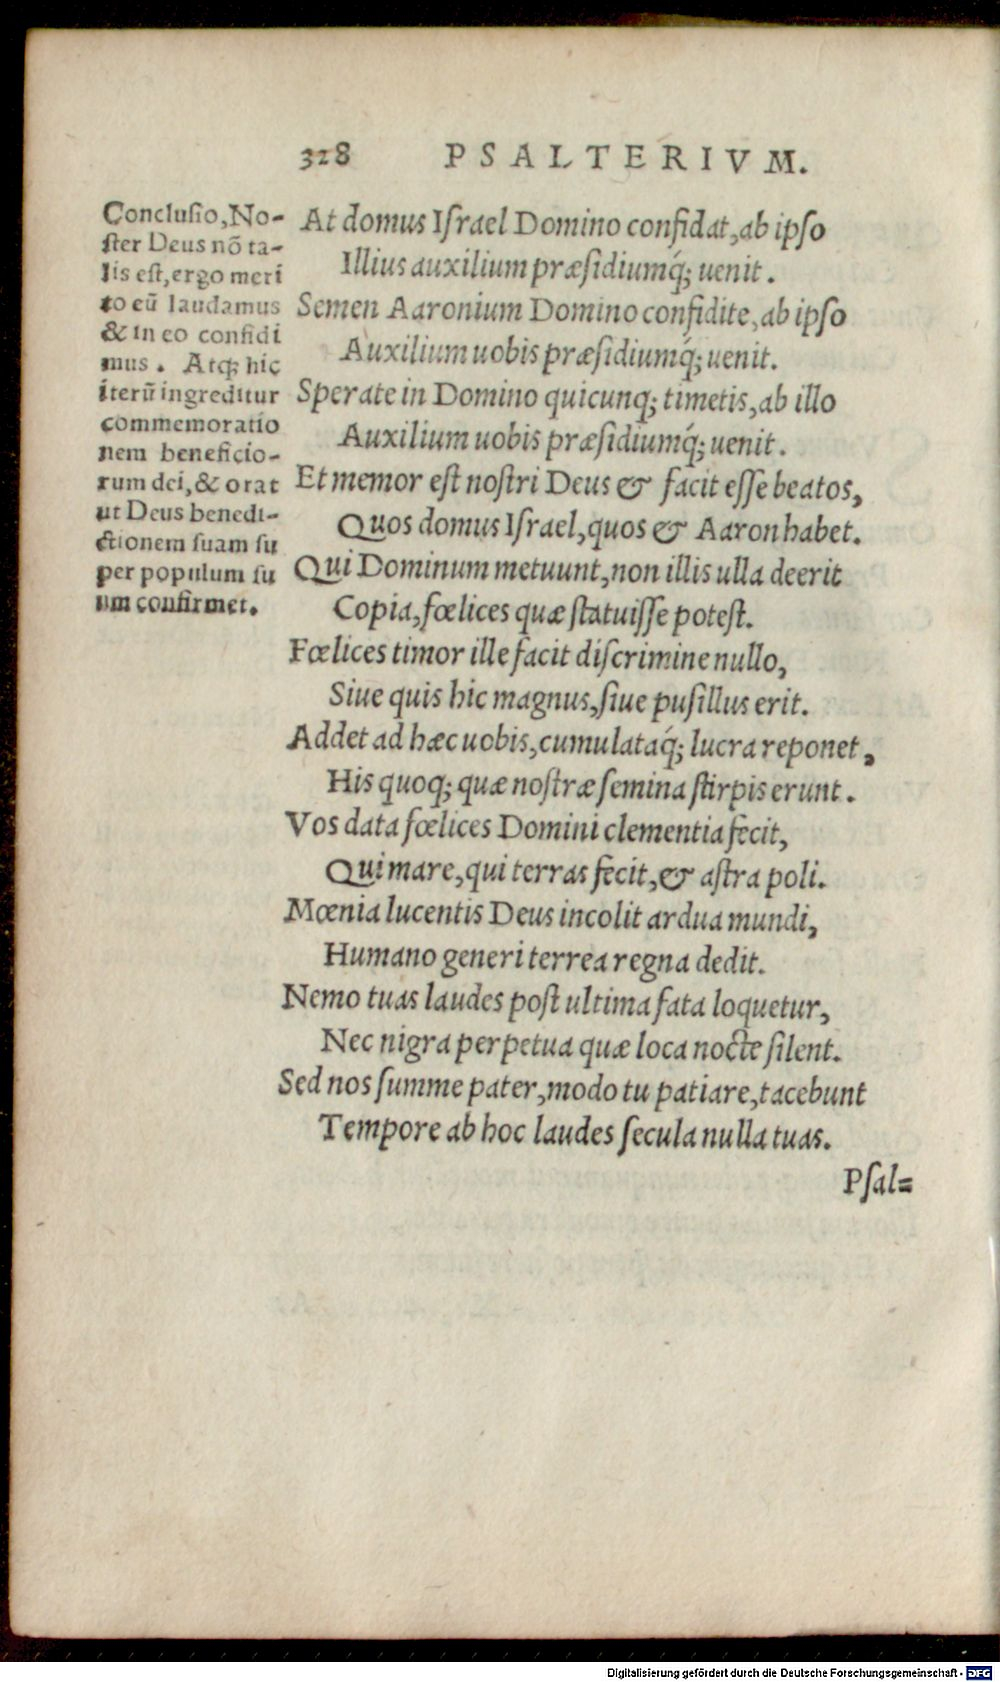 328 PSALTERIVM.
Conclusio, No-
ster Deus nõ ta-
lis est, ergo meri
to eũ laudamus
& in eo confidi
mus. Atq; hic
iterũ ingreditur
commemoratio
nem beneficio-
rum dei, & orat
ut Deus benedi-
ctionem suam su
per populum su
um confirmet.
At domus Israel Domino confidat, ab ipso
Illius auxilium præsidiumq́; uenit.
Semen Aaronium Domino confidite, ab ipso
Auxilium uobis præsidiumq́; uenit.
Sperate in Domino quicunq; timetis, ab illo
Auxilium uobis præsidiumq́; uenit.
Et memor est nostri Deus & facit esse beatos,
Quos domus Israel, quos & Aaron habet.
Qui Dominum metuunt, non illis ulla deerit
Copia, fœlices quæ statuisse potest.
Fœlices timor ille facit discrimine nullo,
Siue quis hic magnus, siue pusillus erit.
Addet ad hæc uobis, cumulataq́; lucra reponet,
His quoq; quæ nostræ semina stirpis erunt.
Vos data fœlices Domini clementia fecit,
Qui mare, qui terras fecit, & astra poli.
Mœnia lucentis Deus incolit ardua mundi,
Humano generi terrea regna dedit.
Nemo tuas laudes post ultima fata loquetur,
Nec nigra perpetua quæ loca nocte silent.
Sed nos summe pater, modo tu patiare, tacebunt
Tempore ab hoc laudes secula nulla tuas.
Psal=
Digitalisierung gefördert durch die Deutsche Forschungsgemeinschaft - DFG